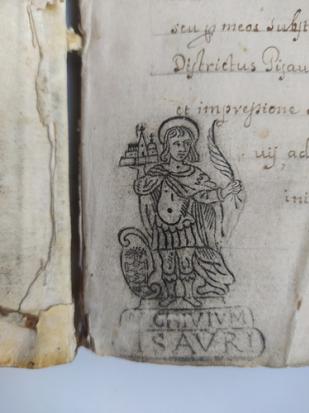 seu ꝑ meos Subst
Districtus Pisau
et impressione
uij ad
ini
CHIVIVM
SAVRI